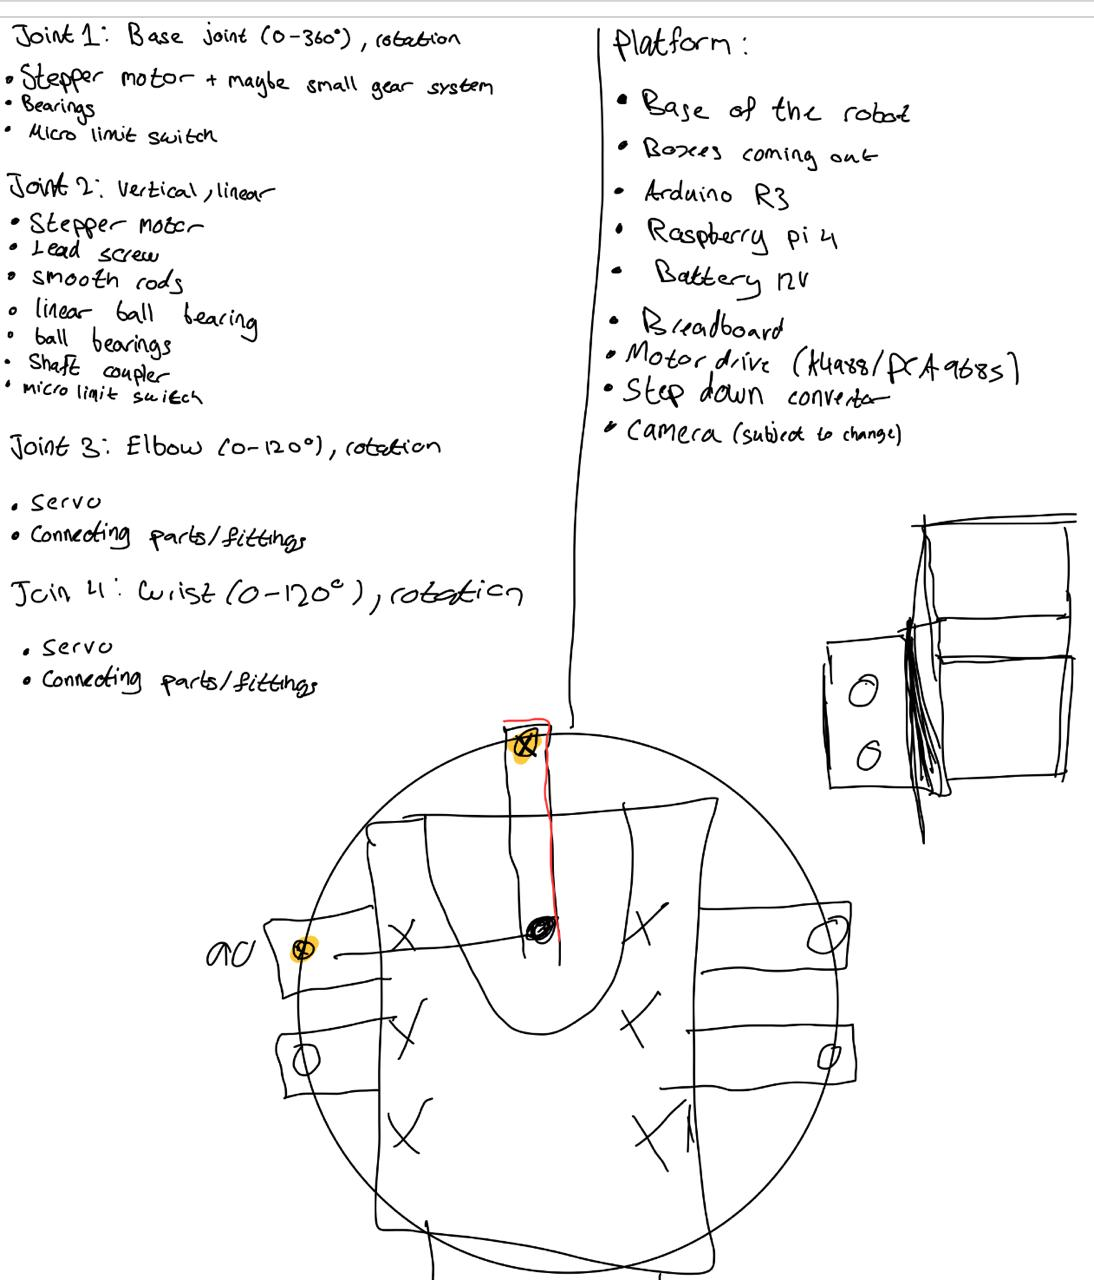 Joint 1: Base joint (0-360°), rotation
• Stepper motor + maybe small gear system
• Bearings
• Micro limit switch
Joint 2: Vertical, linear
• Stepper motor
• Lead screw
• smooth rods
• linear ball bearing
• ball bearings
• Shaft coupler
• micro limit switch
Joint 3: Elbow (0-120°), rotation
• Servo
• Connecting parts/fittings
Join 4: Wrist (0-120°), rotation
• Servo
• Connecting parts/fittings
Platform:
• Base of the robot
• Boxes coming out
• Arduino R3
• Raspberry pi 4
• Battery 12V
• Breadboard
• Motor drive (A4988/PCA9685)
• Step down convertor
• Camera (subject to change)